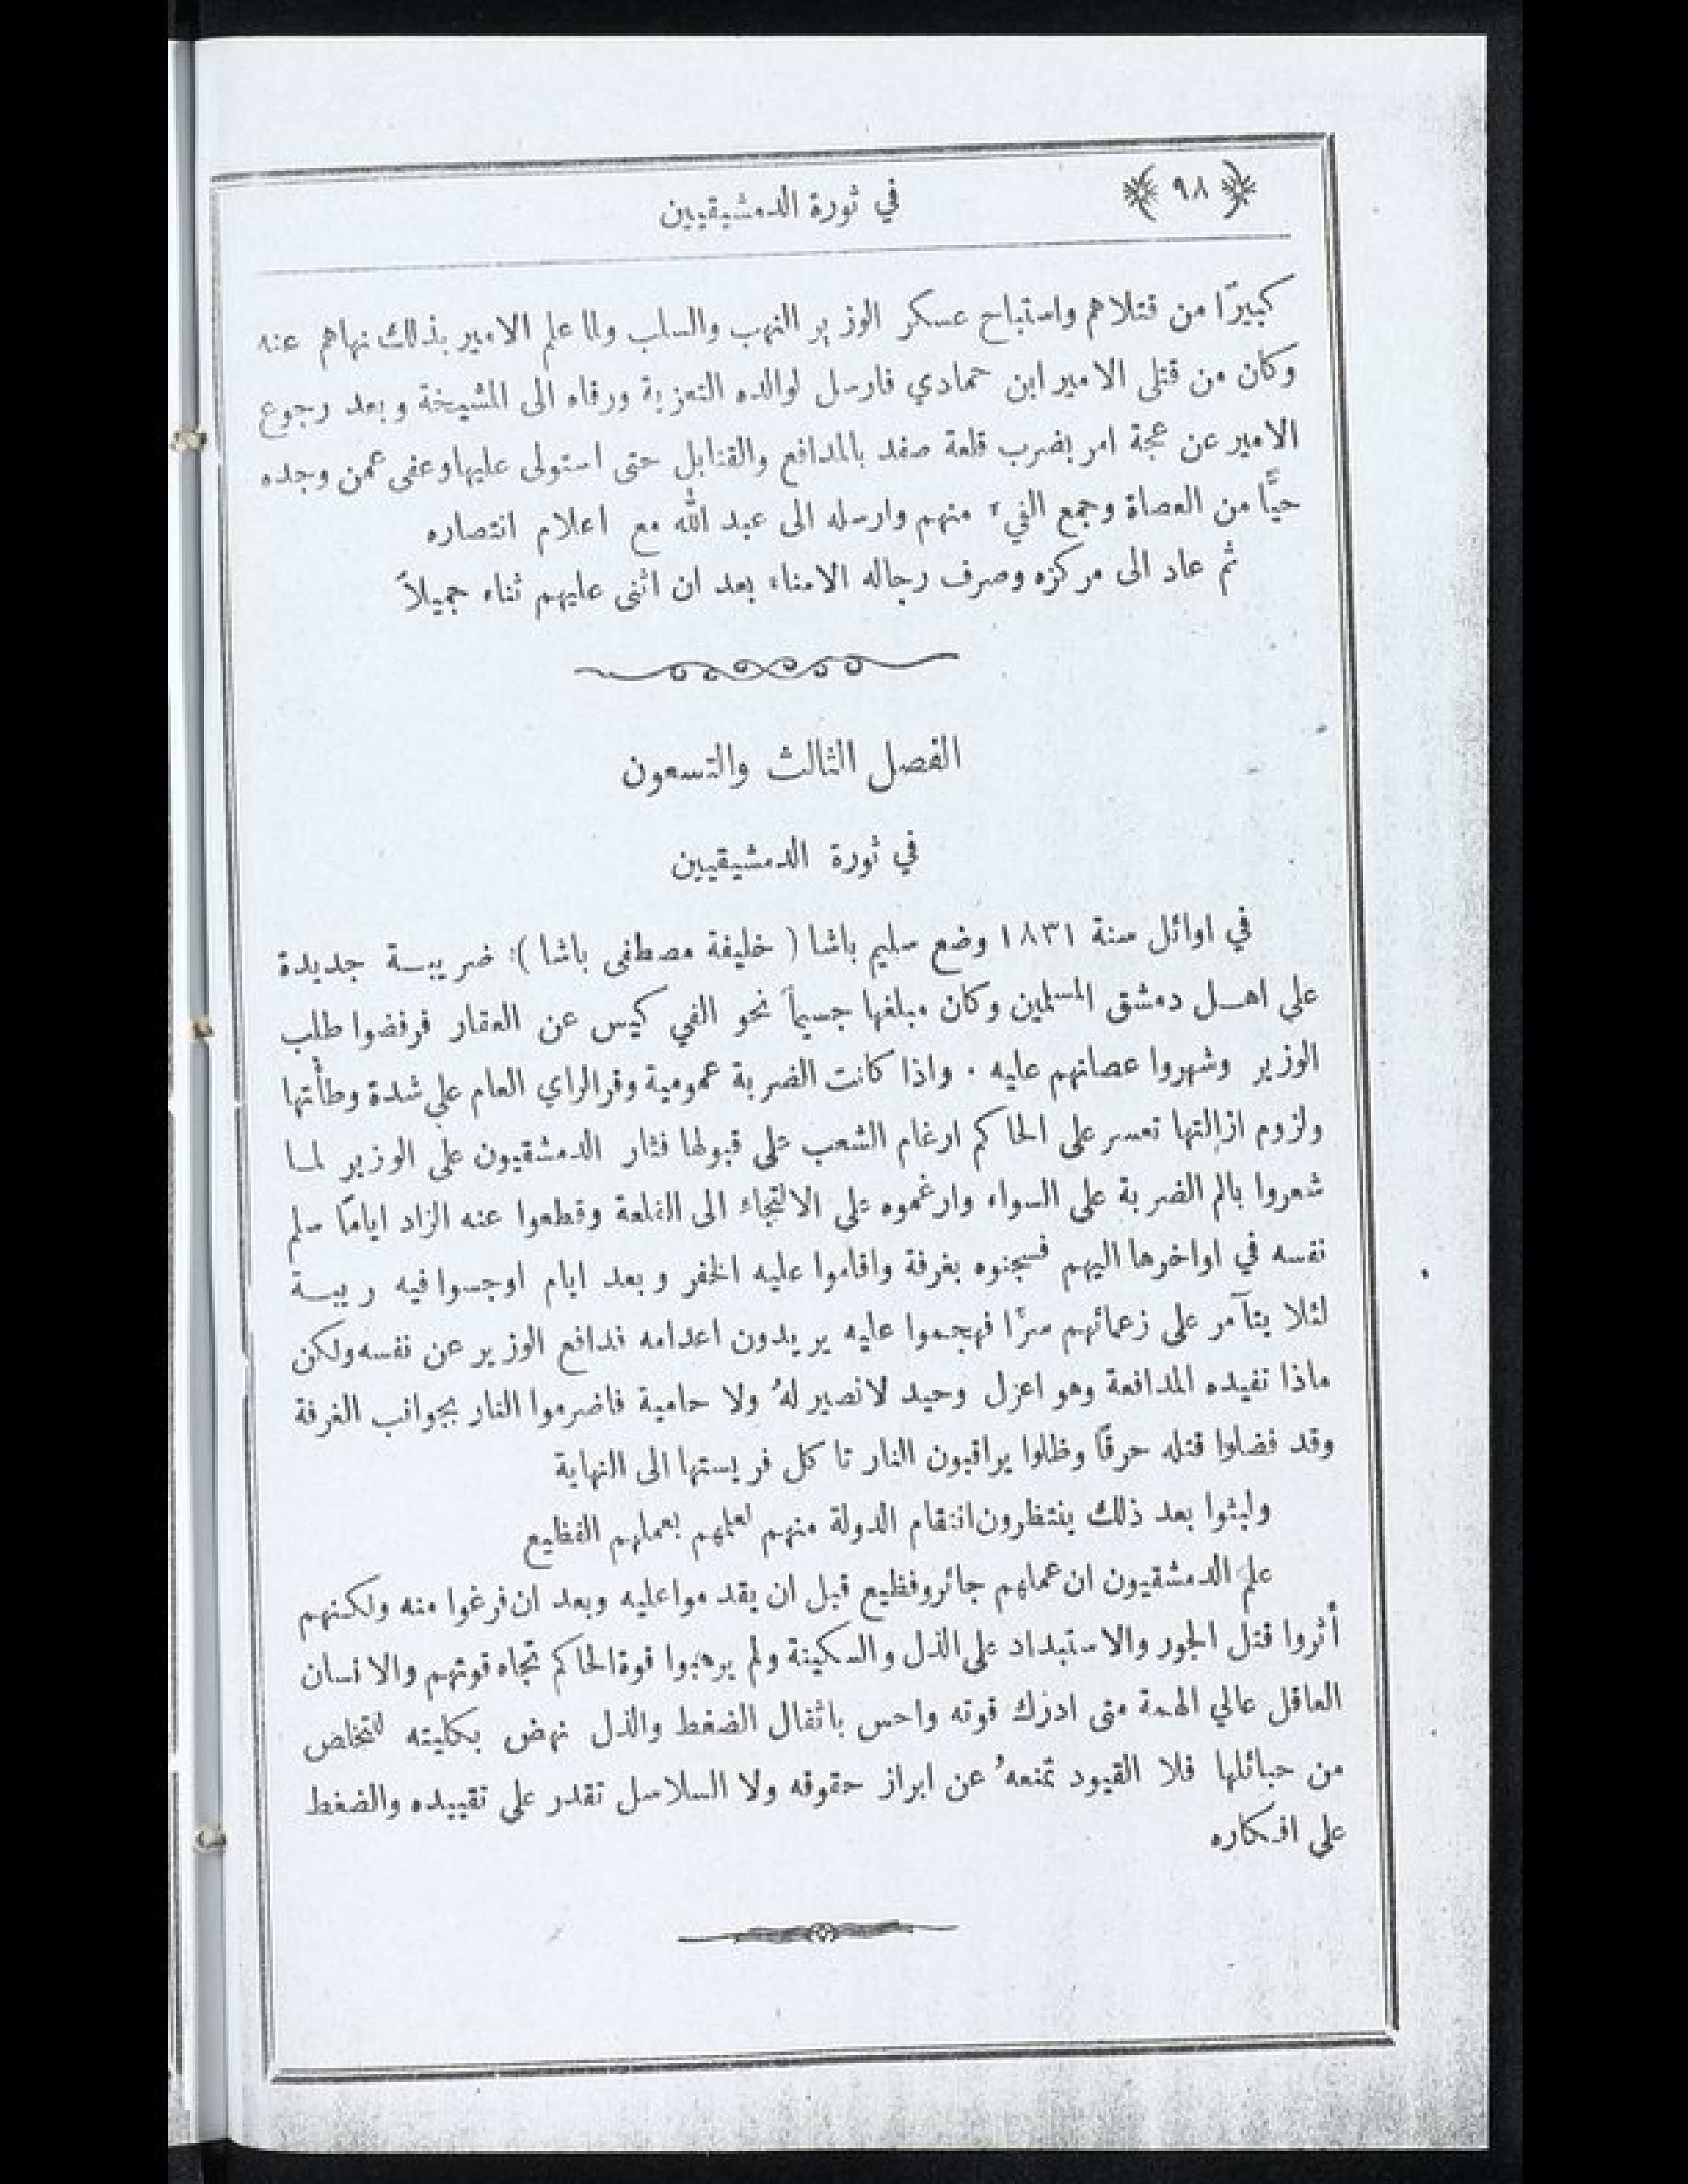 ﴿ ٩٨ ﴾ في ثورة الدمشيقيين
كبيرًا من قتلاهم واستباح عسكر الوزير النهب والسلب ولما علم الامير بذلك نهاهم عنه
وكان من قتلى الامير ابن حمادي فارسل لوالده التعزية ورقاه الى المشيخة وبعد رجوع
الامير عن عجة امر بضرب قلعة صفد بالمدافع والقنابل حتى استولى عليها وعفى عمن وجده
حيًّا من العصاة وجمع الفيء منهم وارسله الى عبد الله مع اعلام انتصاره
ثم عاد الى مركزه وصرف رجاله الامناء بعد ان اثنى عليهم ثناء جميلاً
الفصل الثالث والتسعون
في ثورة الدمشيقيين
في اوائل سنة ١٨٣١ وضع سليم باشا ( خليفة مصطفى باشا ): ضريبة جديدة
على اهل دمشق المسلمين وكان مبلغها جسيماً نحو الفي كيس عن العقار فرفضوا طلب
الوزير وشهروا عصانهم عليه . واذا كانت الضربة عمومية وقر الراي العام على شدة وطأتها
ولزوم ازالتها تعسر على الحاكم ارغام الشعب على قبولها فثار الدمشقيون على الوزير لما
شعروا بالم الضربة على السواء وارغموه على الالتجاء الى القلعة وقطعوا عنه الزاد ايامًا سلم
نفسه في اواخرها اليهم فسجنوه بغرفة واقاموا عليه الخفر وبعد ايام اوجسوا فيه ريبة
لئلا يتآمر على زعمائهم سرًّا فهجموا عليه يريدون اعدامه فدافع الوزير عن نفسه ولكن
ماذا تفيده المدافعة وهو اعزل وحيد لا نصير لهُ ولا حامية فاضرموا النار بجوانب الغرفة
وقد فضلوا قتله حرقًا وظلوا يراقبون النار تاكل فريستها الى النهاية
ولبثوا بعد ذلك ينتظرون انتقام الدولة منهم لعلمهم بعملهم الفظيع
علم الدمشقيون ان عملهم جائر وفظيع قبل ان يقدموا عليه وبعد ان فرغوا منه ولكنهم
أثروا قتل الجور والاستبداد على الذل والسكينة ولم يرهبوا قوة الحاكم تجاه قوتهم والانسان
العاقل عالي الهمة متى ادرك قوته واحس باثقال الضغط والذل نهض بكليته للتخلص
من حبائلها فلا القيود تمنعهُ عن ابراز حقوقه ولا السلاسل تقدر على تقييده والضغط
على افكاره